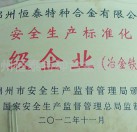 州恒泰特种合金有限公
安全生产标准化
级企业(冶金铁
州市安全生产监督管理局颁
国家安全生产监督管理总局监
二〇一二年十一月